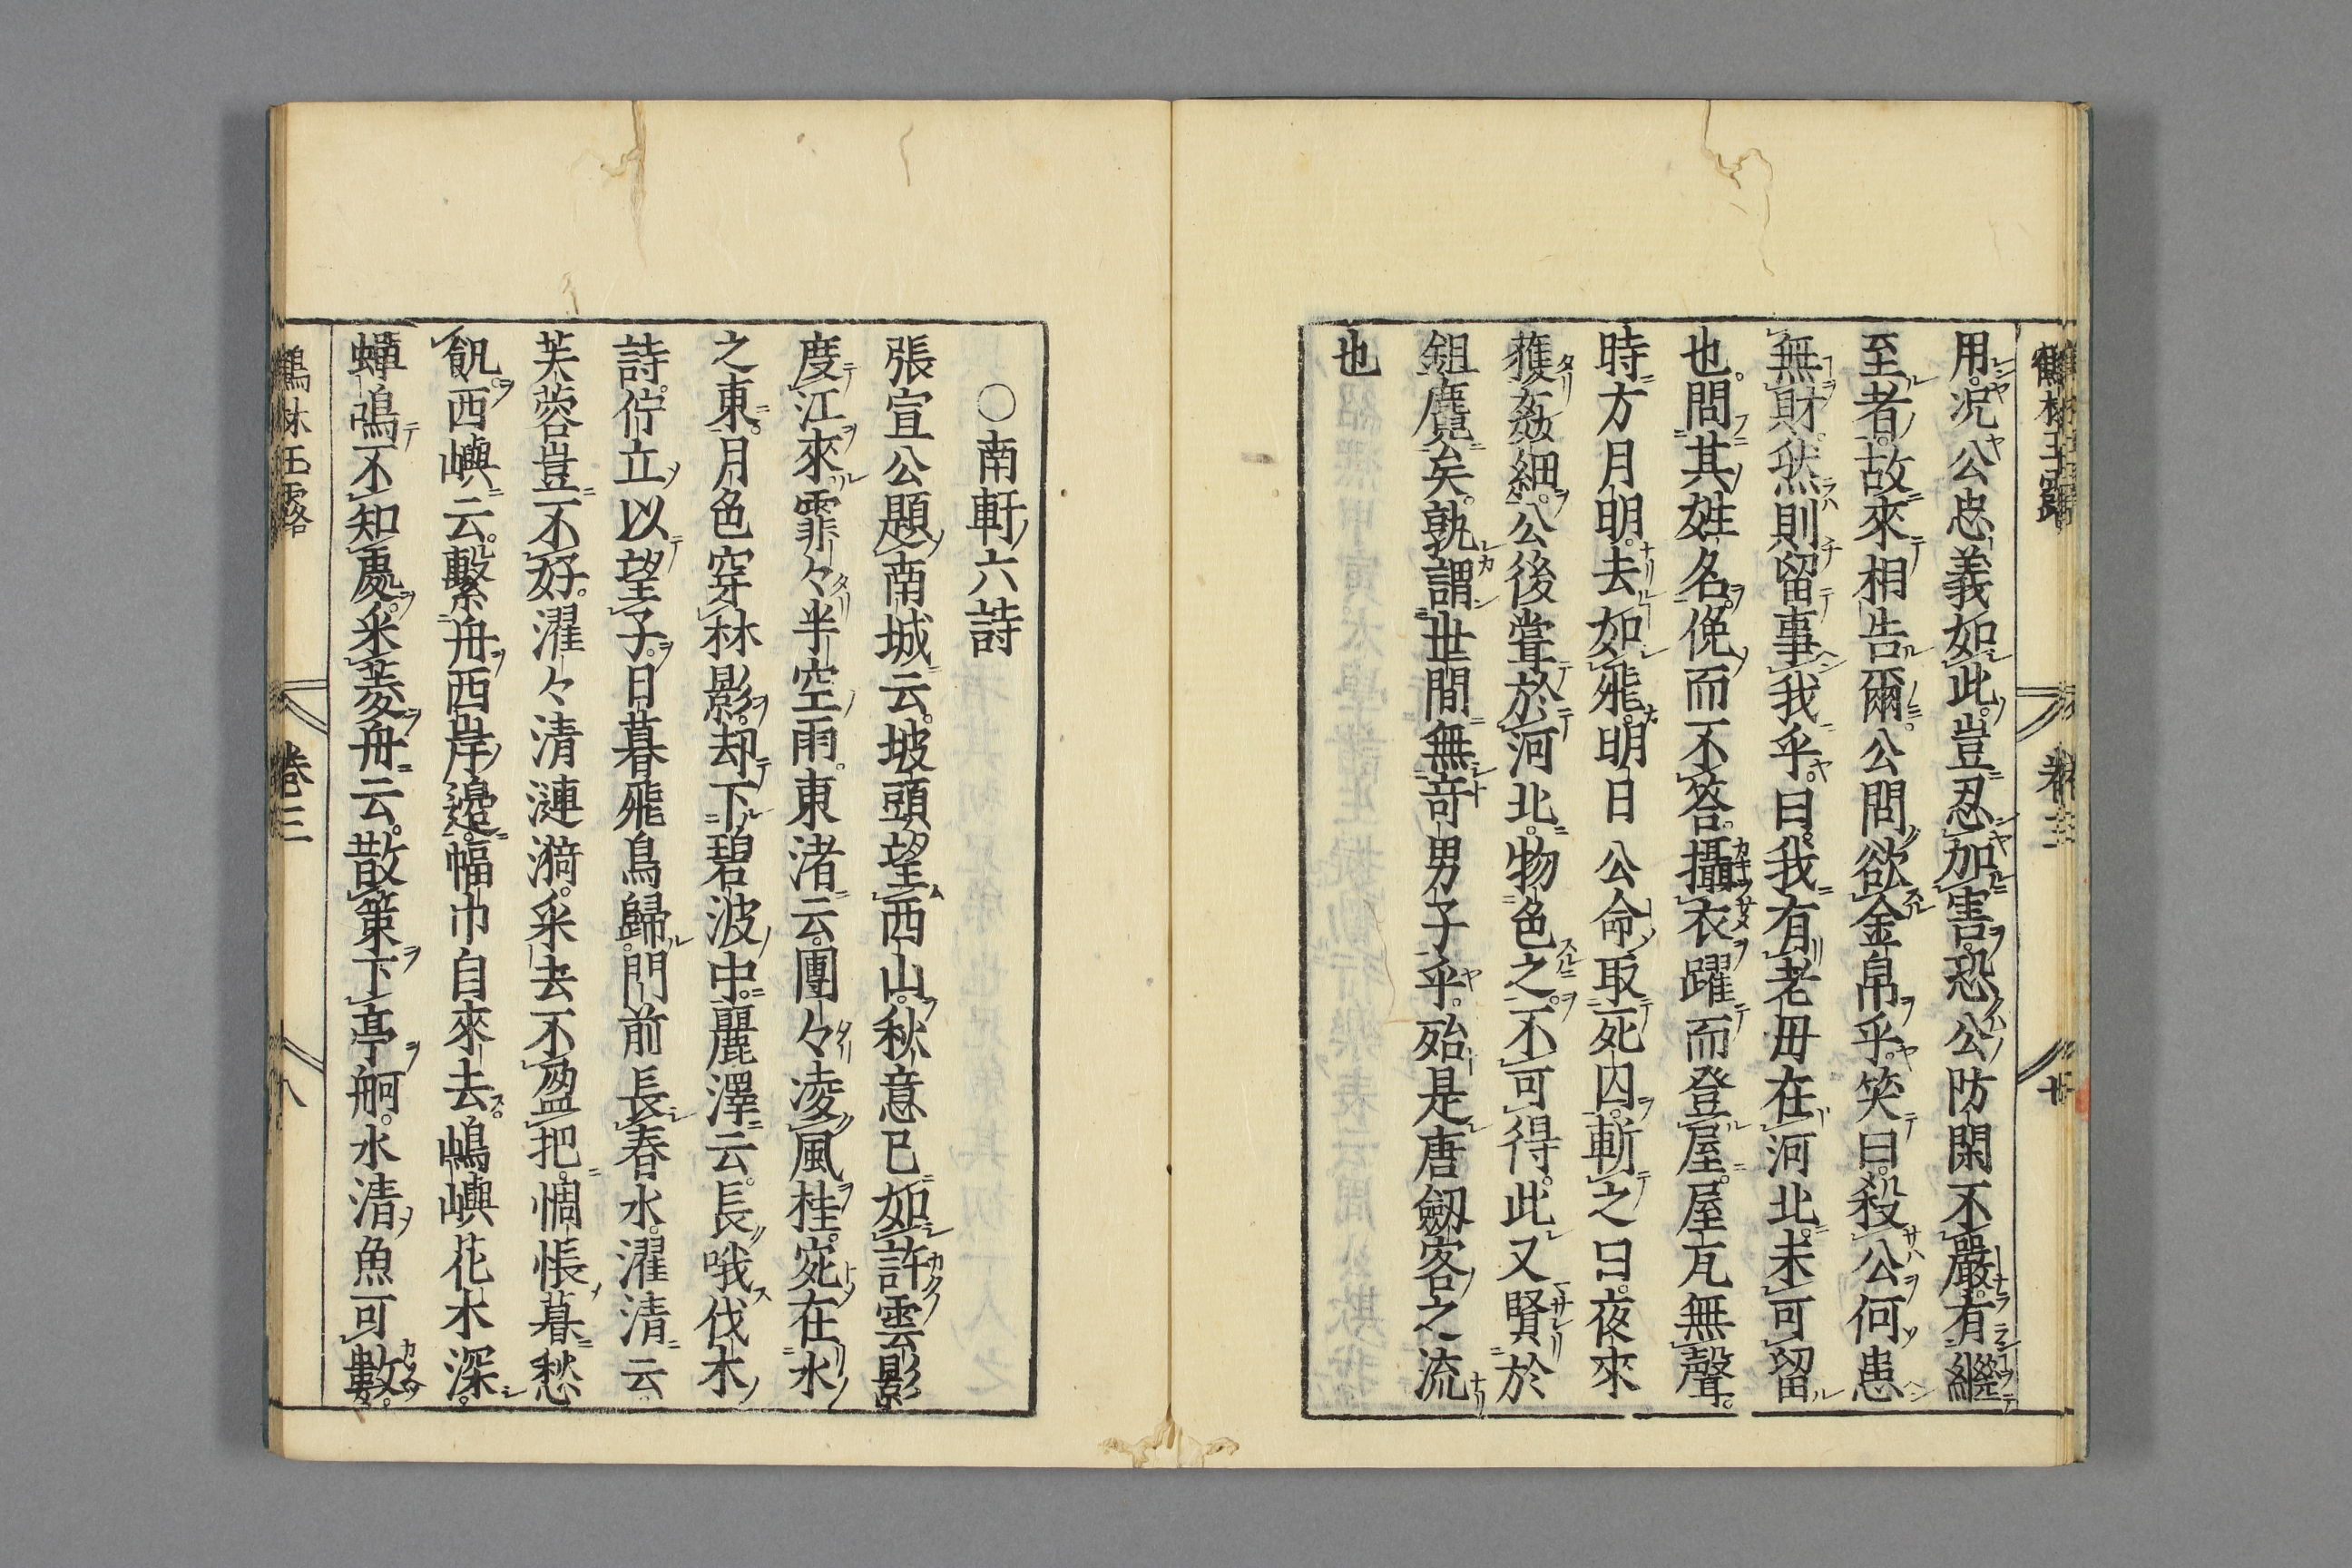 鶴林玉露 卷三
用。况公忠義如此。豈忍加害。恐公防閑不嚴。有繼
至者。故來相告爾。公問欲金帛乎。笑曰。殺公何患
無財。然則留事我乎。曰。我有老母在河北。未可留
也。問其姓名。俛而不答。攝衣躍而登屋。屋瓦無聲。
時方月明。去如飛。明日公命取死囚斬之曰。夜來
獲姦細。公後嘗於河北。物色之。不可得。此又賢於
鉏麑矣。孰謂世間無竒男子乎。殆是唐劔客之流
也
○南軒六詩
張宣公題南城云。坡頭望西山。秋意已如許。雲影
度江來。霏々半空雨。東渚云。團々凌風桂。宛在水
之東。月色穿林影。却下碧波中。麗澤云。長哦伐木
詩。佇立以望子。日暮飛鳥歸。門前長春水。濯清云
芙蓉豈不好。濯々清漣漪。采去不盈把。惆悵暮愁
飢。西嶼云。繫舟西岸邊。幅巾自來去。嶋嶼花木深。
蟬鳴不知處。采菱舟云。散策下亭舸。水清魚可數。
鶴林玉露 卷三 八